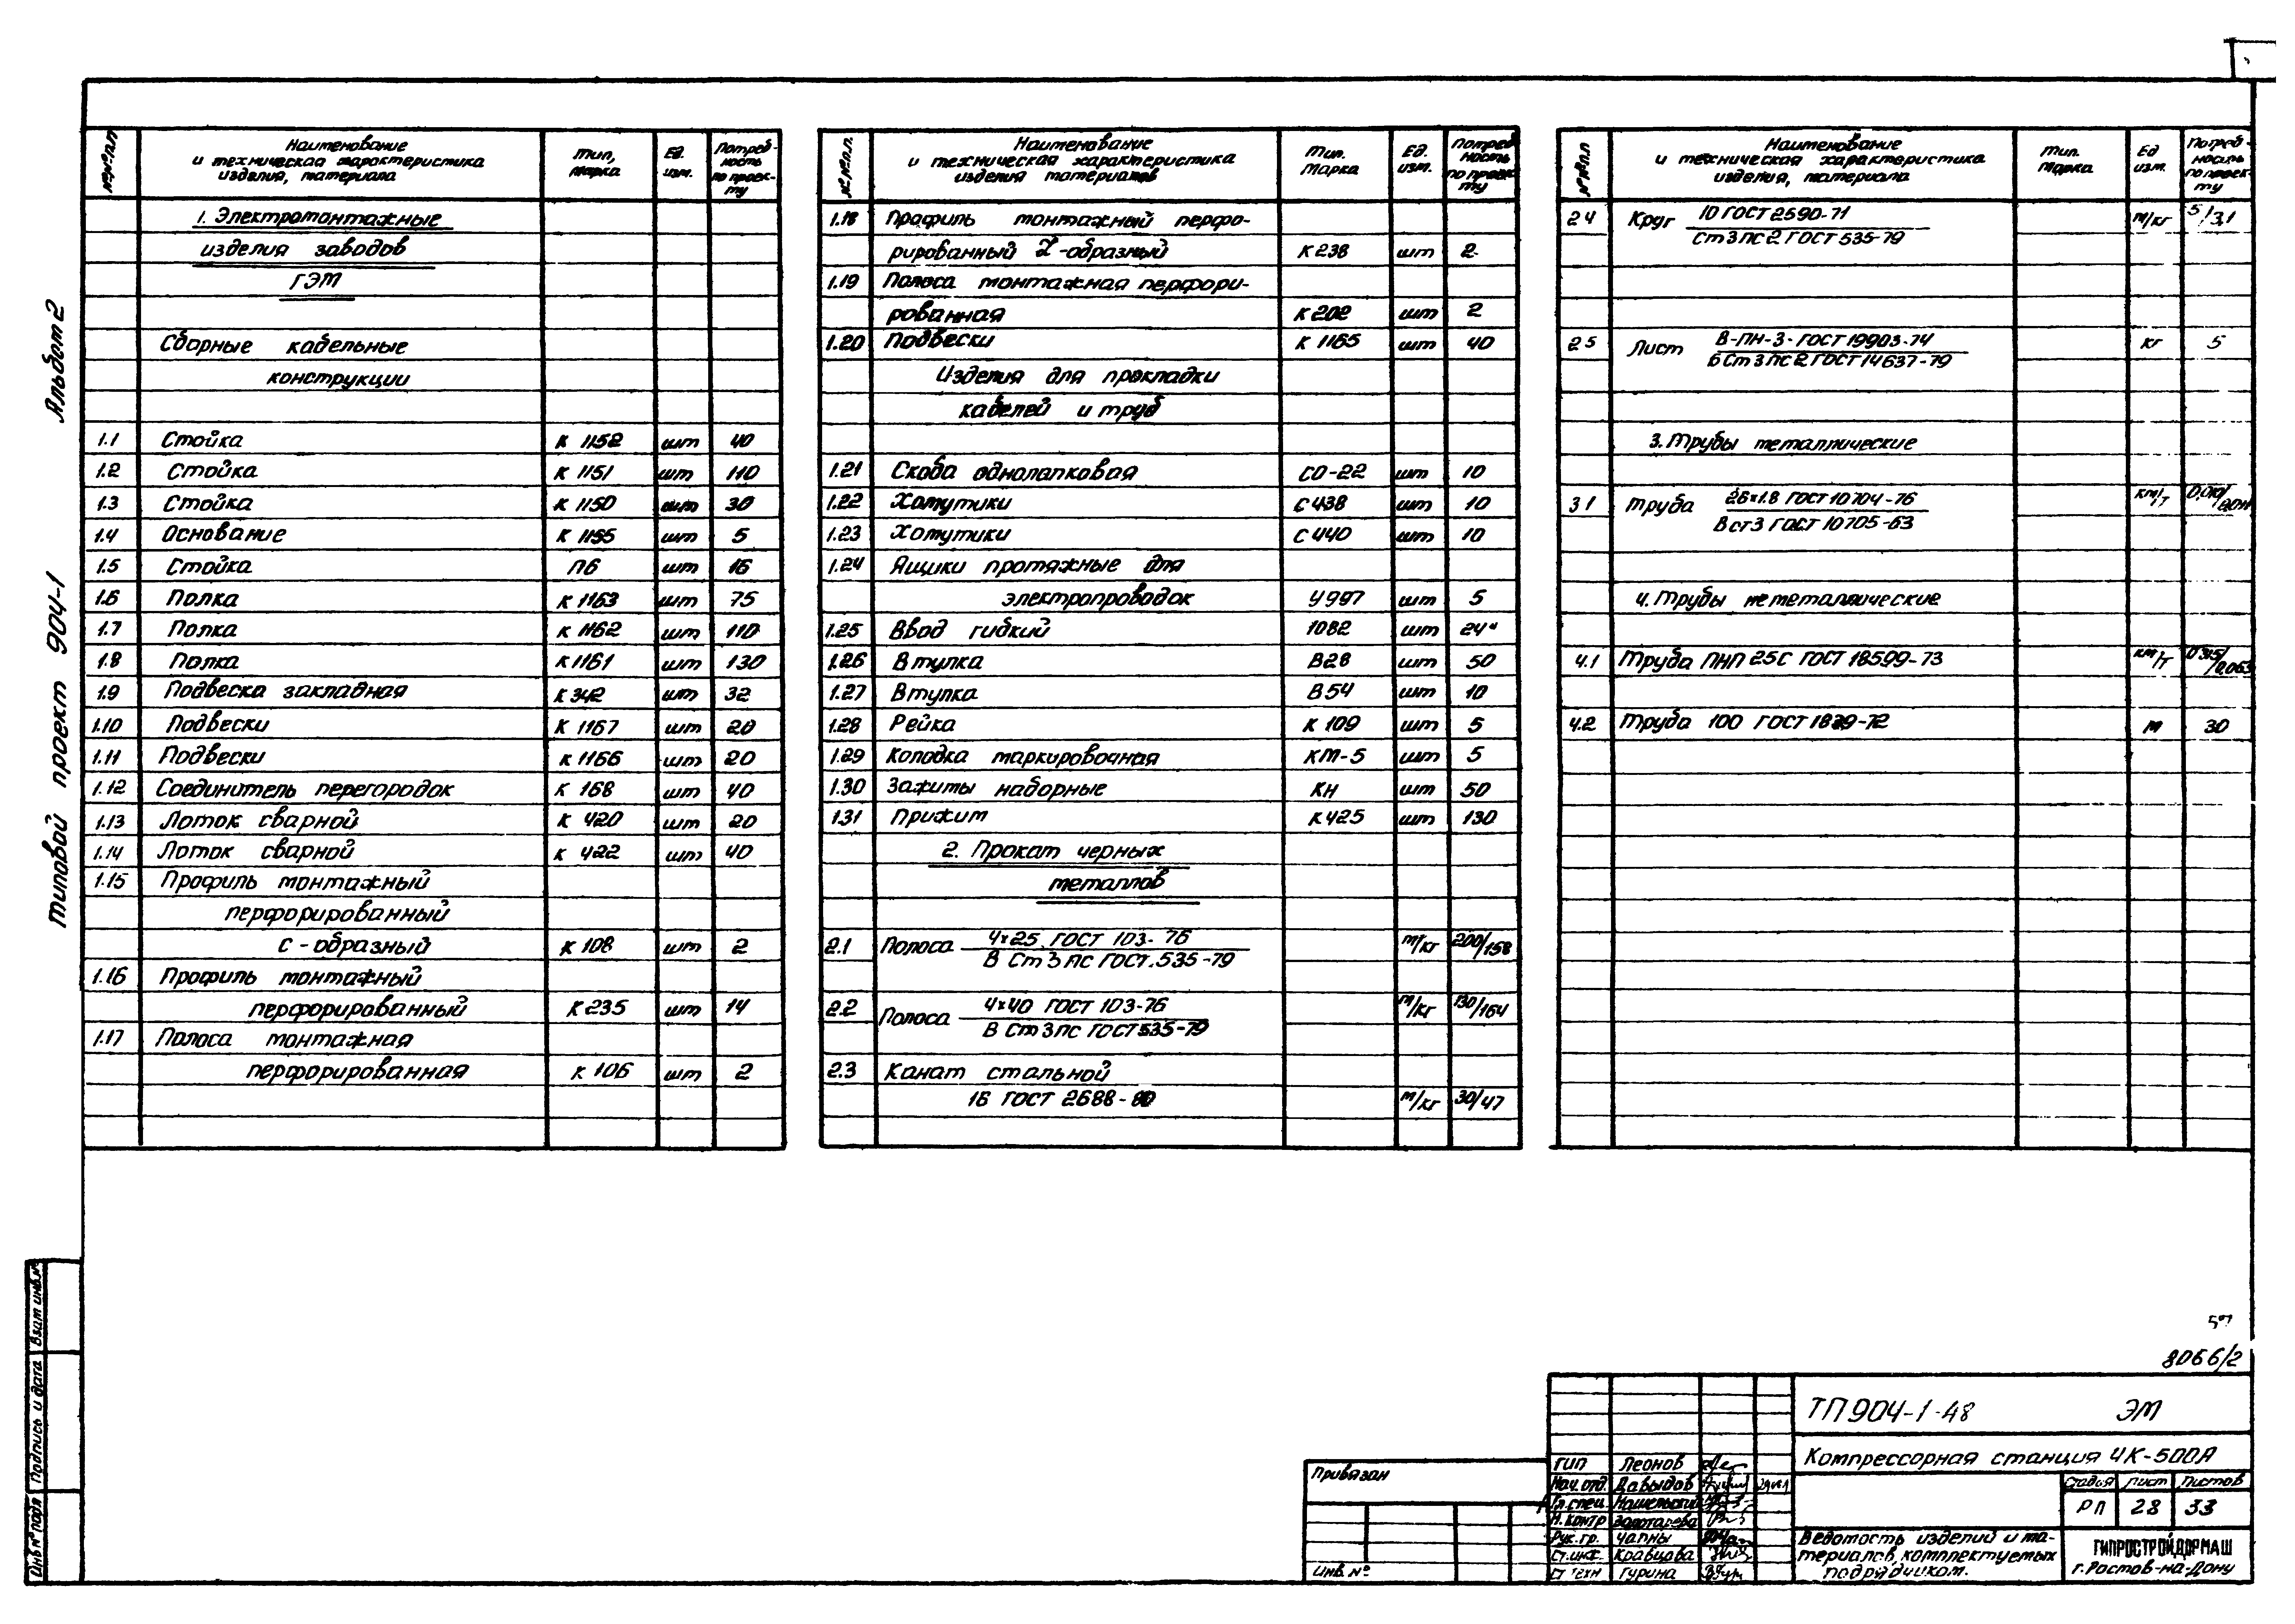 Альбом 2
типовой проект 904-1
№№п.п Наименование и техническая характеристика изделия, материала Тип, марка Ед. изм. Потребность по проекту
1. Электромонтажные
изделия заводов
ГЭМ
Сборные кабельные
конструкции
1.1 Стойка К 1152 шт 40
1.2 Стойка К 1151 шт 110
1.3 Стойка К 1150 шт 30
1.4 Основание К 1155 шт 5
1.5 Стойка П6 шт 16
1.6 Полка К 1163 шт 75
1.7 Полка К 1162 шт 110
1.8 Полка К 1161 шт 130
1.9 Подвеска закладная К 342 шт 32
1.10 Подвески К 1167 шт 20
1.11 Подвески К 1166 шт 20
1.12 Соединитель перегородок К 168 шт 40
1.13 Лоток сварной К 420 шт 20
1.14 Лоток сварной К 422 шт 40
1.15 Профиль монтажный
перфорированный
С-образный К 108 шт 2
1.16 Профиль монтажный
перфорированный К 235 шт 14
1.17 Полоса монтажная
перфорированная К 106 шт 2
№№п.п. Наименование и техническая характеристика изделия материалов Тип. Марка Ед. изм. Потребность по проекту
1.18 Профиль монтажный перфо-
рированный Z-образный К 238 шт 2
1.19 Полоса монтажная перфори-
рованная К 202 шт 2
1.20 Подвески К 1165 шт 40
Изделия для прокладки
кабелей и труб
1.21 Скоба однолапковая СО-22 шт 10
1.22 Хомутики С 438 шт 10
1.23 Хомутики С 440 шт 10
1.24 Ящики протяжные для
электропроводок У 997 шт 5
1.25 Ввод гибкий 1082 шт 24
1.26 Втулка В28 шт 50
1.27 Втулка В54 шт 10
1.28 Рейка К 109 шт 5
1.29 Колодка маркировочная КМ-5 шт 5
1.30 Зажимы наборные КН шт 50
1.31 Прижим К 425 шт 130
2. Прокат черных
металлов
2.1 Полоса 4×25 ГОСТ 103-76 м/кг 200/158
В Ст 3 пс ГОСТ.535-79
2.2 Полоса 4×40 ГОСТ 103-76 м/кг 130/164
В Ст 3 пс ГОСТ 535-79
2.3 Канат стальной
16 ГОСТ 2688-80 м/кг 30/47
№№п.п Наименование и техническая характеристика изделия, материала Тип. Марка Ед изм. Потребность по проекту
2 4 Круг 10 ГОСТ 2590-71 м/кг 5/3,1
Ст 3 пс 2 ГОСТ 535-79
2 5 Лист В-ПН-3-ГОСТ 19903-74 кг 5
БСт 3 пс 2 ГОСТ 14637-79
3. Трубы металлические
3 1 Труба 26×1.8 ГОСТ 10704-76 км/т
В ст3 ГОСТ 10705-63
4. Трубы неметаллические
4.1 Труба ПНП 25С ГОСТ 18599-73 км/т
4.2 Труба 100 ГОСТ 1839-72 м 30
8066/2
ТП 904-1-48 ЭМ
Компрессорная станция 4К-500А
Стадия Лист Листов
РП 28 33
Ведомость изделий и ма-
териалов, комплектуемых
подрядчиком.
ГИПРОСТРОЙДОРМАШ
г. Ростов-на-Дону
Привязан
Инв. №
ГИП Леонов
Нач. отд. Давыдов
Гл. спец.
Н. контр Золотарева
Рук. гр. Чапны
Ст. инж. Кравцова
Ст техн Гурина
Взам инв. №
Подпись и дата
Инв № подл